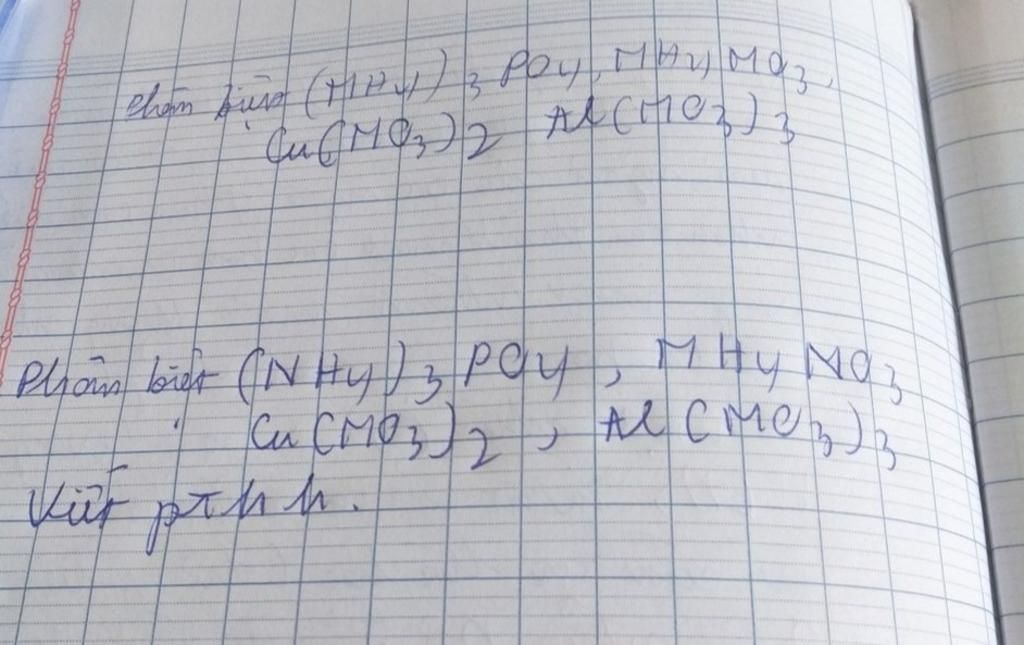 Phân biệt (NH4)3PO4, NH4NO3,
Cu(NO3)2 Al(NO3)3
Phân biệt (NH4)3PO4, NH4NO3
Cu(NO3)2, Al(NO3)3
Viết pthh.